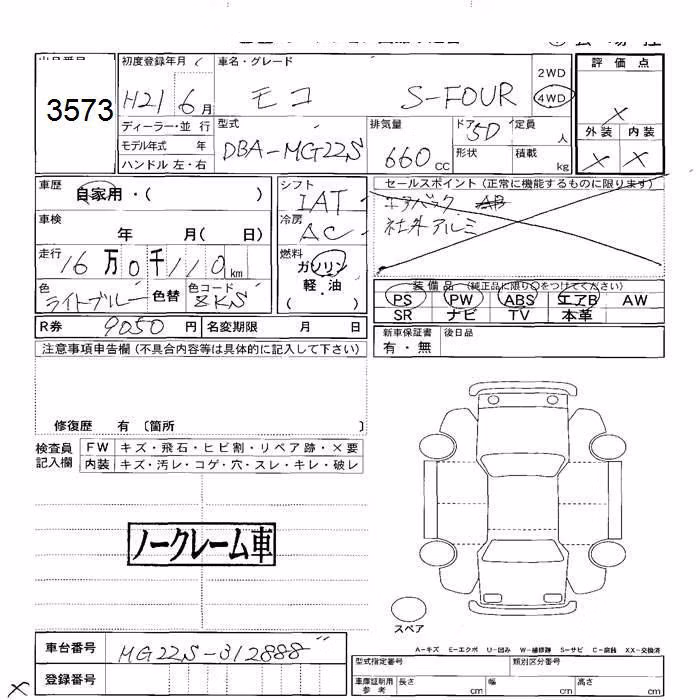 3573
初度登録年月
H21 6月
車名・グレード
モコ S-FOUR
2WD
4WD
評価点
×
外装 内装
× ×
ディーラー・並行
モデル年式 年
ハンドル 左・右
型式
DBA-MG22S
排気量
660cc
ドア 5D
形状
定員 人
積載 kg
車歴 自家用・( )
車検 年 月( 日)
走行 16万0千110km
色 ライトブルー 色替 色コード 8KS
シフト
IAT
冷房
AC
燃料
ガソリン
軽・油
( )
セールスポイント(正常に機能するものに限ります)
エアバック AB
社外アルミ
装備品(純正品に限り○をつけてください)
PS PW ABS エアB AW
SR ナビ TV 本革
R券 9050円 名変期限 月 日
新車保証書 後日品
有・無
注意事項申告欄(不具合内容等は具体的に記入して下さい)
修復歴 有〔箇所 〕
検査員
記入欄
FW キズ・飛石・ヒビ割・リペア跡・×要
内装 キズ・汚レ・コゲ・穴・スレ・キレ・破レ
ノークレーム車
スペア
A-キズ E-エクボ U-凹み W-補修跡 S-サビ C-腐蝕 XX-交換済
車台番号 MG22S-312888
登録番号
×
型式指定番号 類別区分番号
車庫証明用
参考
長さ cm 幅 cm 高さ cm